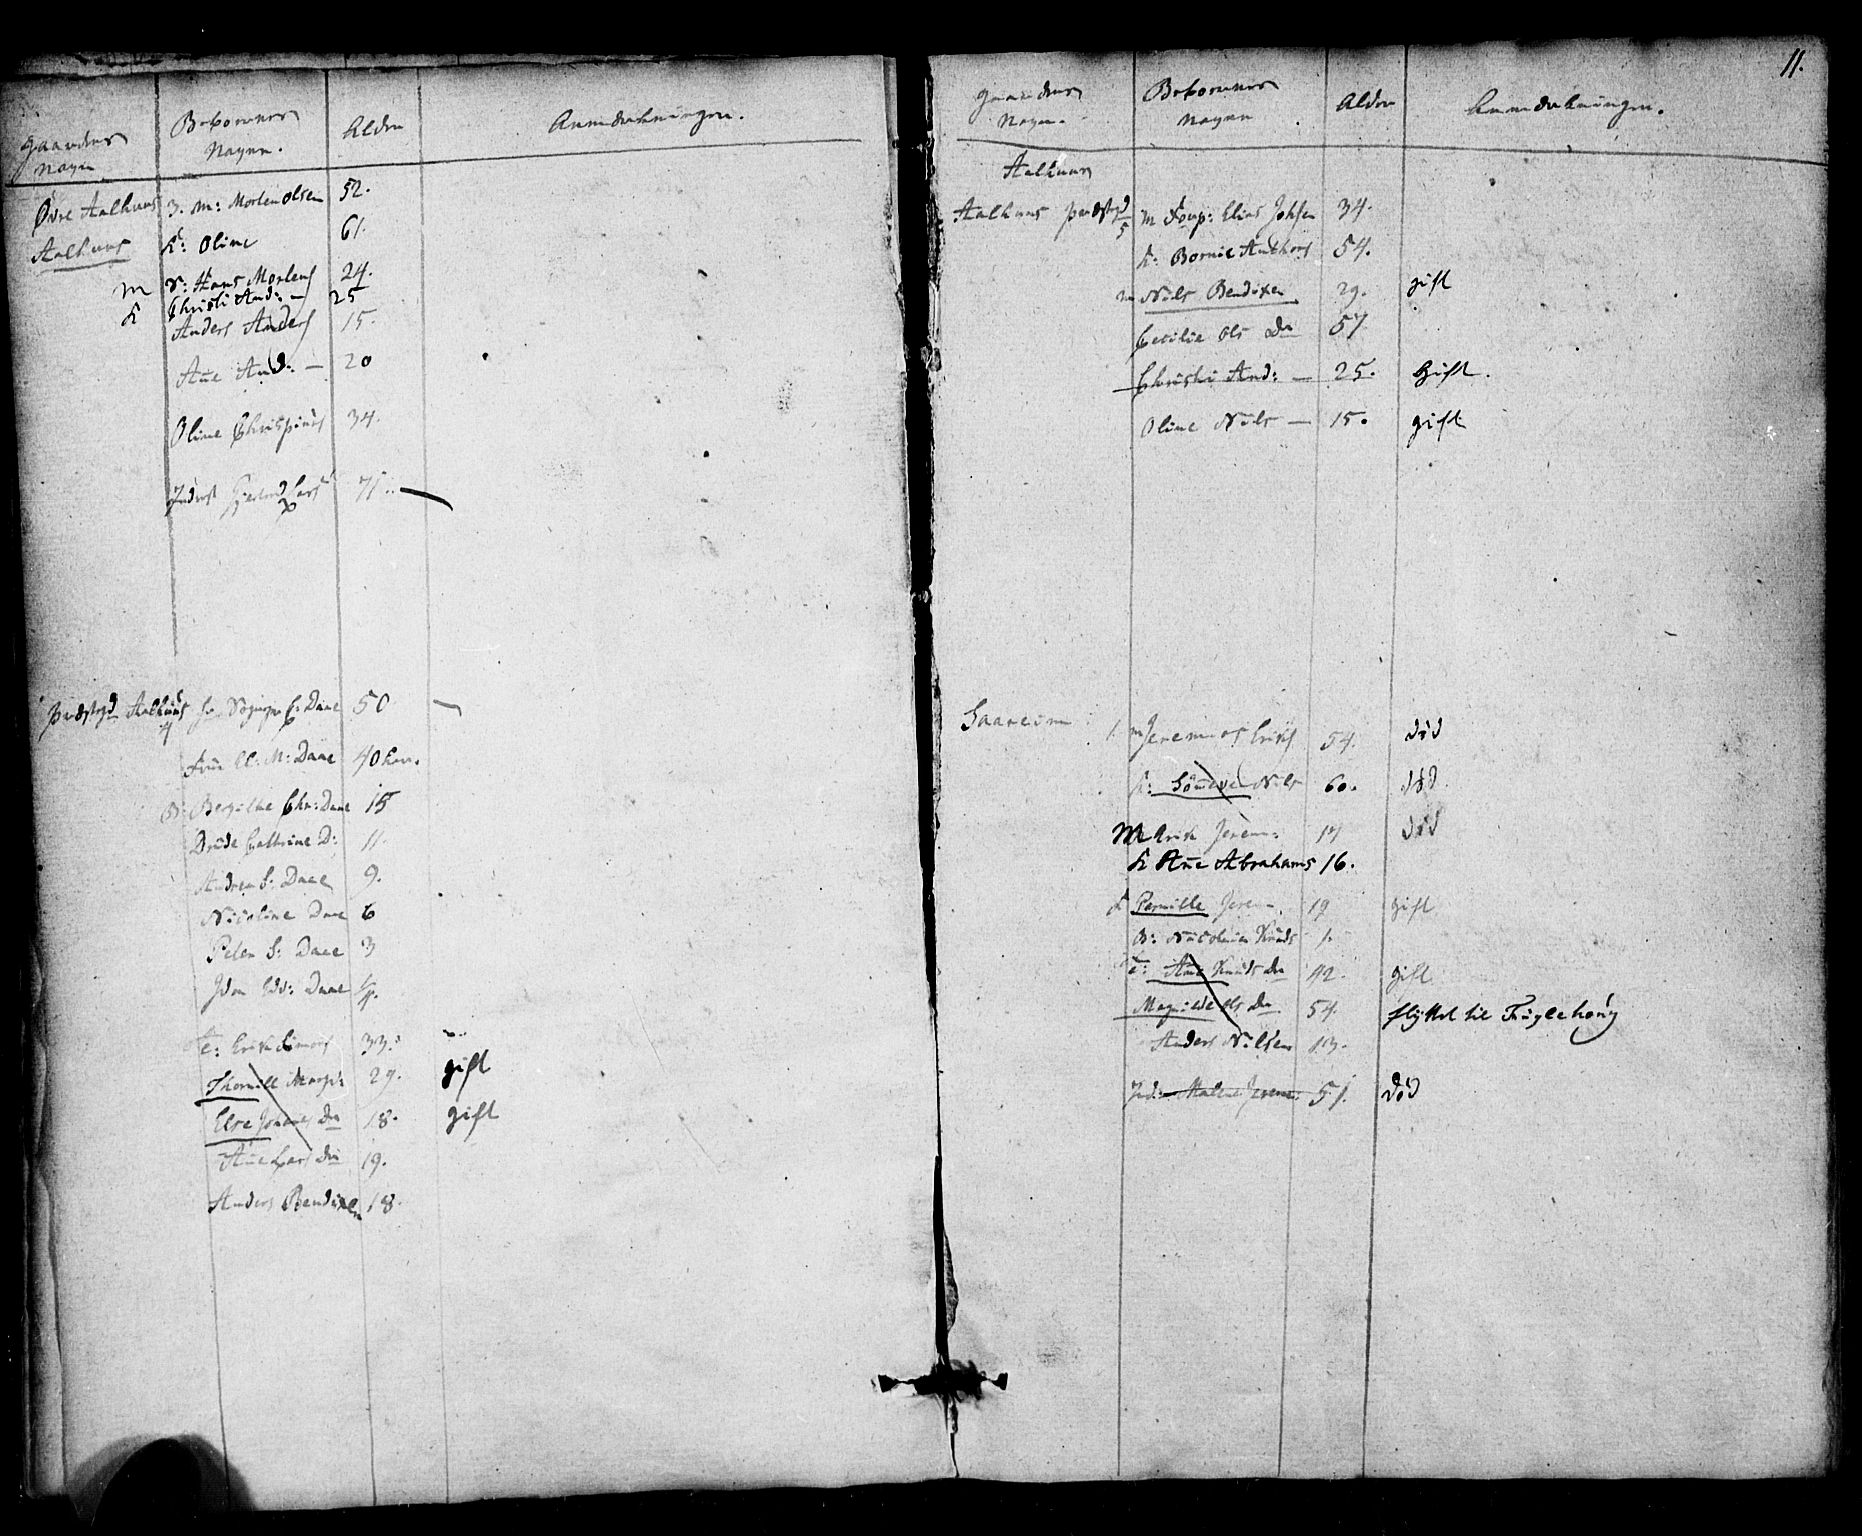 Gaardens Navn
Beboernes Navne.
Alder
Anmærkninger.
Øvre Aalhuus 3. M: Morten Olsen 52.
Aalhuus K: Oline 61.
m S: Hans Mortens 24.
K Christi And: — 25
Anders Anders 15.
Ane And: — 20
Oline Chrispins 34.
Inderst Gjertrud Lars 71.
Præstegd Aalhuus 4 Hr Sognepr C: Daae 50
Frue M: Daae 40
B: Chr: Daae 15
Drude Cathrine D: 11.
Andrea S: Daae 9.
Nicoline Daae 6
Peter S: Daae 3
Daae
T: Erik Simons 33.
29. gift
Else Johanes Da 18. gift
Ane Lars Da 19.
Anders Bendixen 18.
11.
Gaardens Navn.
Beboernes Navne
Alder
Anmærkninger.
Aalhuus
Aalhuus Præstegd 5 m Forp: Elias Johsen 34.
K: Bornil Anthons 54.
m Nils Bendixen 29. gift
Cecilie Ols Da 57
Christi And: — 25. Gift.
Oline Nils — 15. gift
Saareim 1. m Jeremias Eriks 54. død
K: Sönneve Nils 60. død
M Erik Jerem: 17 død
K Ane Abrahams 16.
K Pernille Jerem 19 gift
B: Nicolai Knuds 1.
T: Ane Knuds Da 42. gift
Magnilde Ols Da 54. flyttet til Fuglehoug
Anders Nilsen 13.
Ind: Malene Jerem: 51. død